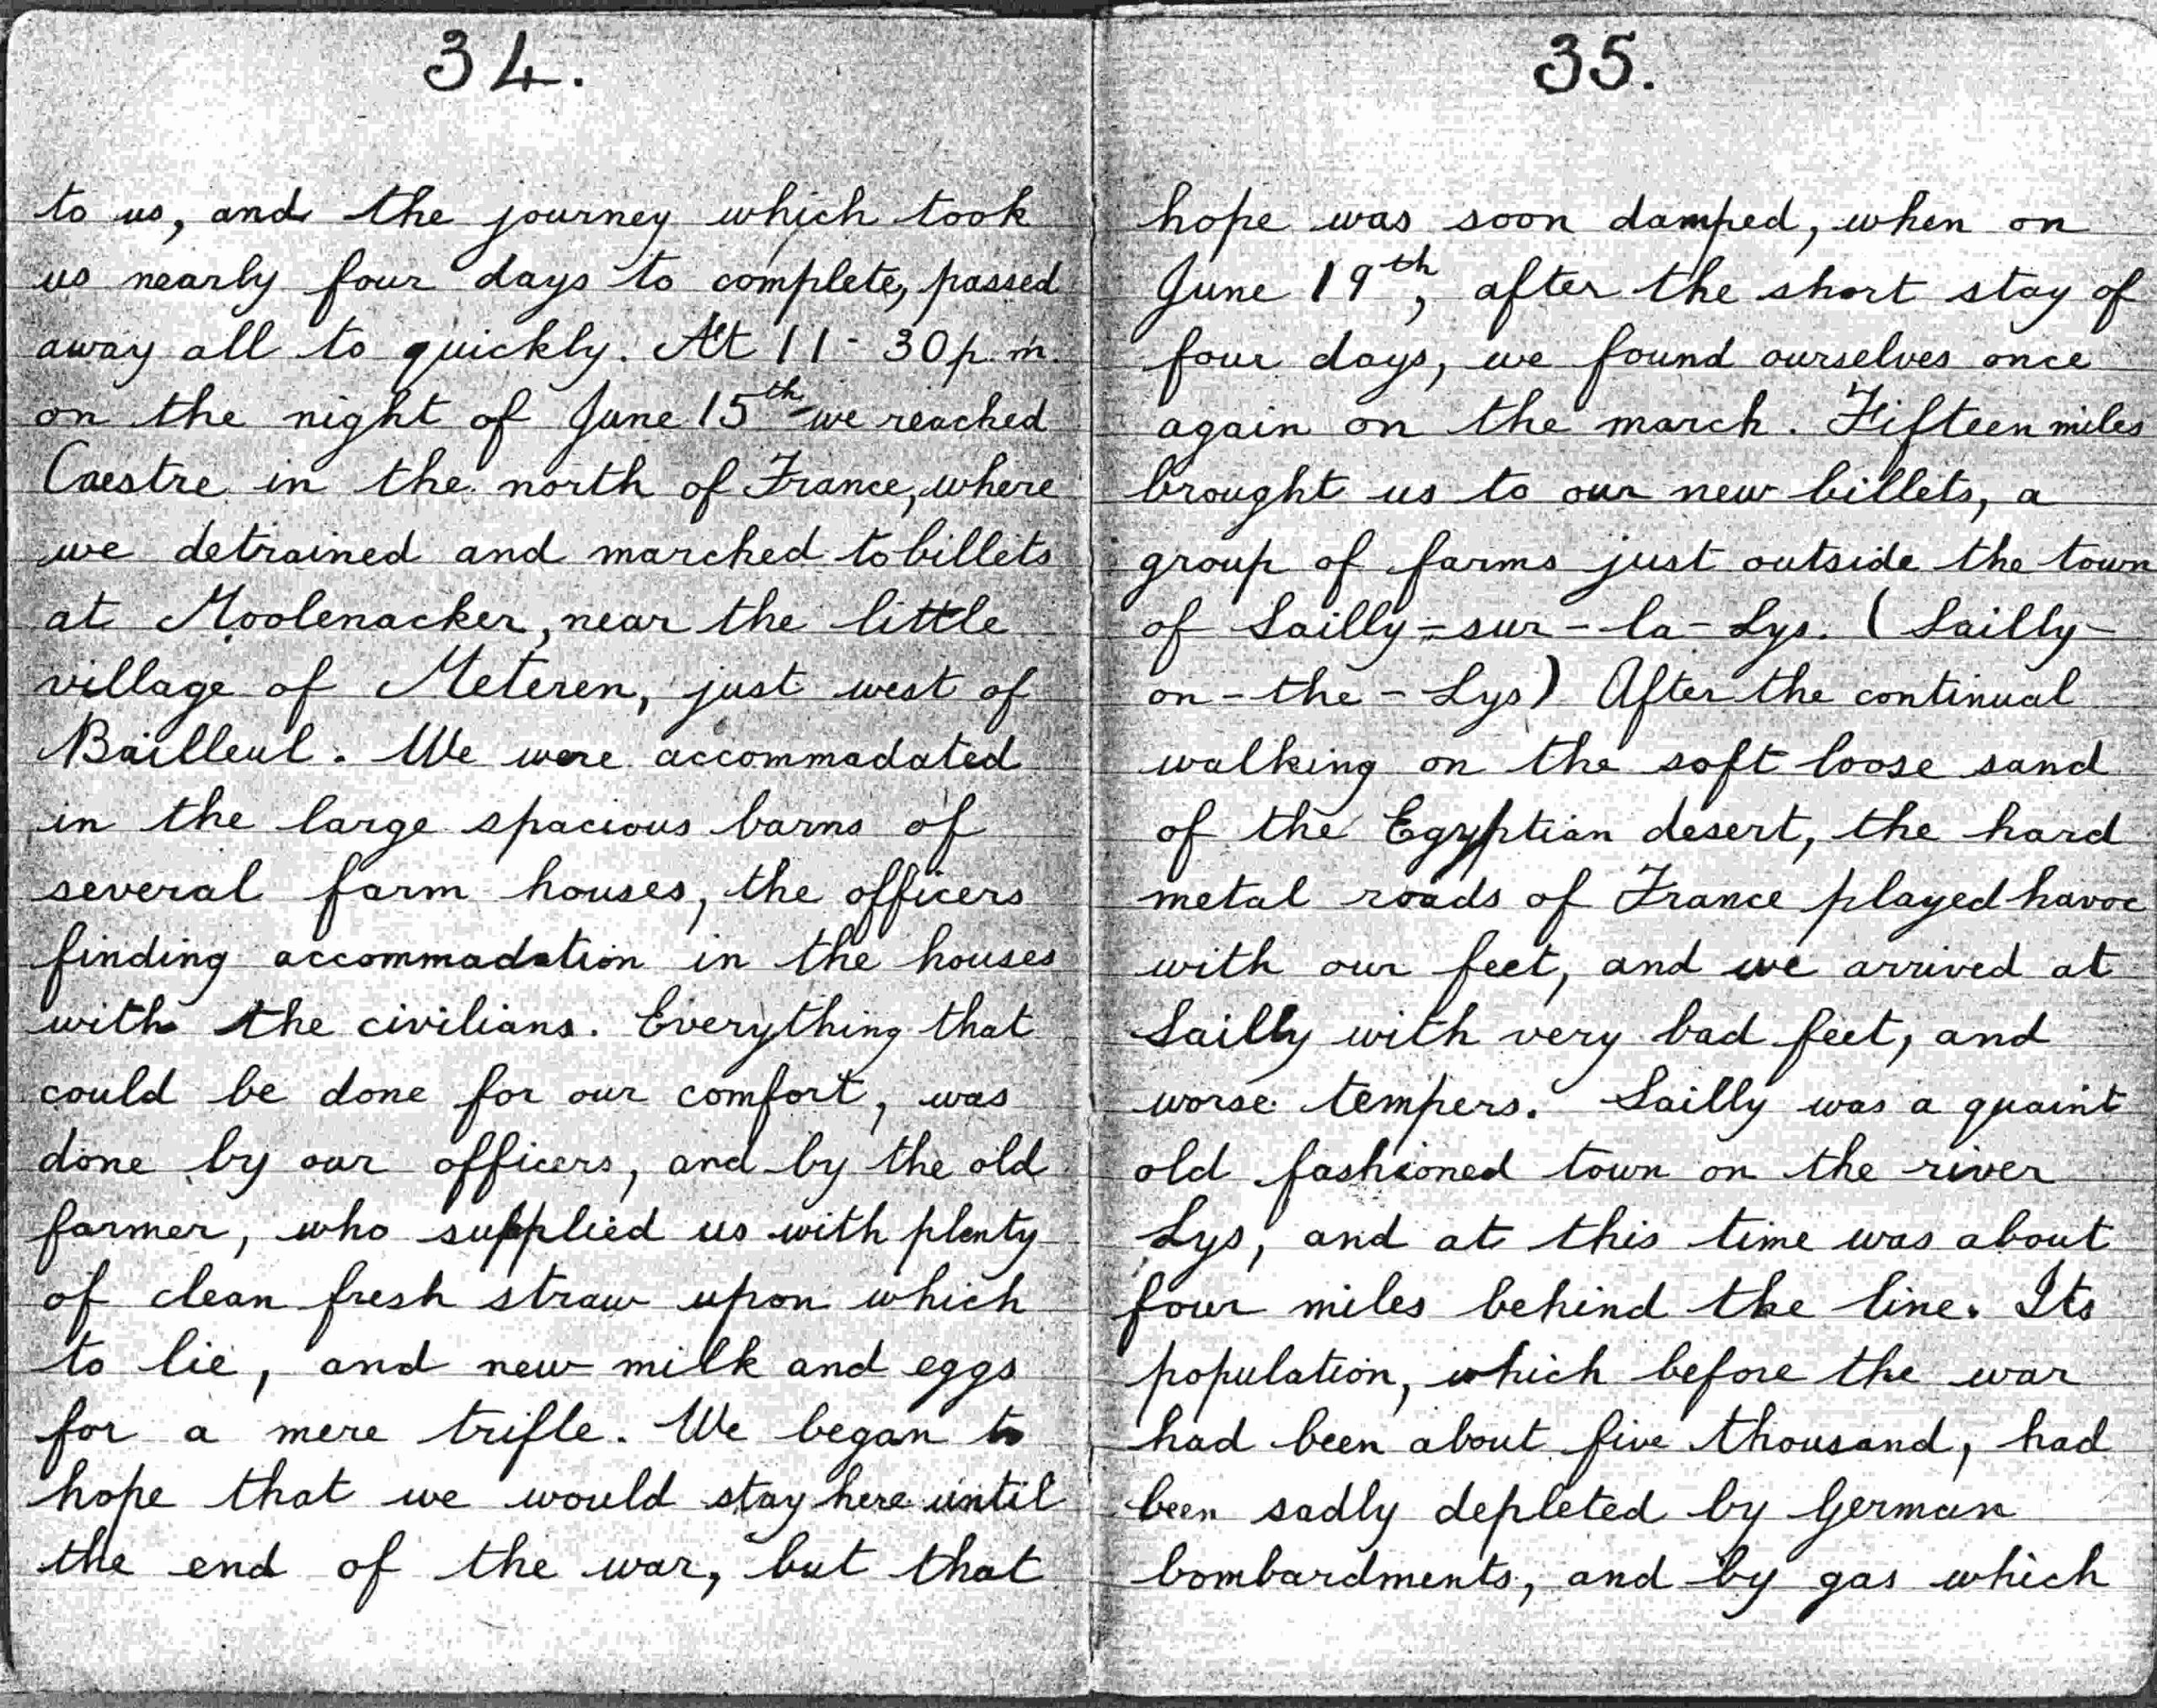 34.
to us, and the journey which took
us nearly four days to complete, passed
away all to quickly. At 11-30 p.m.
on the night of June 15th we reached
Caestre in the north of France, where
we detrained and marched to billets
at Moolenacker, near the little
village of Meteren, just west of
Bailleul. We were accommadated
in the large spacious barns of
several farm houses, the officers
finding accommadation in the houses
with the civilians. Everything that
could be done for our comfort, was
done by our officers, and by the old
farmer, who supplied us with plenty
of clean fresh straw upon which
to lie, and new milk and eggs
for a mere trifle. We began to
hope that we would stay here until
the end of the war, but that
35.
hope was soon damped, when on
June 19th, after the short stay of
four days, we found ourselves once
again on the march. Fifteen miles
brought us to our new billets, a
group of farms just outside the town
of Sailly-sur-la-Lys. (Sailly-
on-the-Lys) After the continual
walking on the soft loose sand
of the Egyptian desert, the hard
metal roads of France played havoc
with our feet, and we arrived at
Sailly with very bad feet, and
worse tempers. Sailly was a quaint
old fashioned town on the river
Lys, and at this time was about
four miles behind the line. Its
population, which before the war
had been about five thousand, had
been sadly depleted by German
bombardments, and by gas which